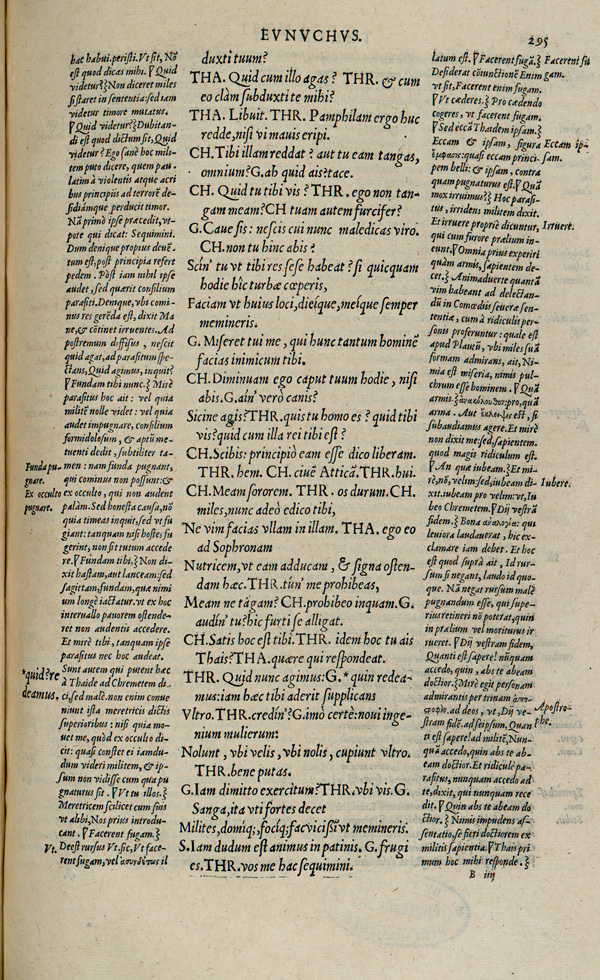 EVNVCHVS.
295
hac habui. peristi. Vt sit, Nō
est quod dicas mihi. ¶ Quid
videtur? ¶ Non diceret miles
si staret in sententia: sed iam
videtur timore mutatus.
¶ Quid videtur? Dubitan-
di est quod dictum sit, Quid
videtur? Ego sanè hoc mili-
tem puto dicere, quem pau-
latim à violentis atque acri
bus principiis ad terrorē de-
sidiámque perducit timor.
Nā primò ipse præcedit, vt-
pote qui dicat: Sequimini.
Dum denique propius deuē-
tum est, post principia refert
pedem. Pòst iam nihil ipse
audet, sed quærit consilium
parasiti. Denique, vbi comi-
nus res gerēda est, dixit Ma
ne, & cōtinet irruentes. Ad
postremum diffisus, nescit
quid agat, ad parasitum spe-
ctans, Quid agimus, inquit?
¶ Fundam tibi nunc. Mirè
parasitus hoc ait: vel quia
militē nolle videt: vel quia
audet impugnare, consilium
formidolosum, & aptū me-
tuenti dedit, subtiliter ta-
Funda pu-
gnare.
men: nam funda pugnant,
qui cominus non possunt: &
Ex occulto
pugnare.
ex occulto, qui non audent
palàm. Sed honesta causa, nō
quia timeas inquit, sed vt fu
giant: tanquam nisi hostes fu
gerint, non sit tutum accede
re. ¶ Fundam tibi. Non di-
xit hastam, aut lanceam: sed
sagittam, fundam, quæ nimi
um longè iactatur. vt ex hoc
interuallo pauorem ostende-
ret non audentis accedere.
Et mirè tibi, tanquam ipse
parasitus nec hoc audeat.
Sunt autem qui putent hæc
*quid? re
deamus.
à Thaide ad Chremetem di-
ci, sed malè. non enim conue
niunt ista meretricis dictis
superioribus: nisi quia mo-
uet me, quòd ex occulto di-
cit: quasi constet ei iamdu-
dum videri militem, & ip-
sum non vidisse cum qua pu
gnaturus sit. ¶ Vt tu illos.
Meretricem scilicet cum suis
vt alibi, Nos prius introdu-
cant. ¶ Facerent fugam.
Vt.
Deest rursus Vt. sic, Vt face-
rent fugam, vel il
duxti tuum?
THA. Quid cum illo agas? THR. & cum
eo clàm subduxti te mihi?
THA. Libuit. THR. Pamphilam ergo huc
redde, nisi vi mauis eripi.
CH. Tibi illam reddat? aut tu eam tangas,
omnium? G. ah quid ais? tace.
CH. Quid tu tibi vis? THR. ego non tan-
gam meam? CH tuam autem furcifer?
G. Caue sis: nescis cui nunc maledicas viro.
CH. non tu hinc abis?
Scin' tu vt tibi res sese habeat? si quicquam
hodie hîc turbæ cœperis,
Faciam vt huius loci, dieíque, meíque semper
memineris.
G. Miseret tui me, qui hunc tantum hominē
facias inimicum tibi.
CH. Diminuam ego caput tuum hodie, nisi
abis. G. ain' verò canis?
Siccine agis? THR. quis tu homo es? quid tibi
vis? quid cum illa rei tibi est?
CH. Scibis: principiò eam esse dico liberam.
THR. hem. CH. ciuē Atticā. THR. hui.
CH. Meam sororem. THR. os durum. CH.
miles, nunc adeò edico tibi,
Ne vim facias vllam in illam. THA. ego eo
ad Sophronam
Nutricem, vt eam adducam, & signa osten-
dam hæc. THR. tún' me prohibeas,
Meam ne tāgam? CH. prohibeo inquam. G.
audin' tu? hic furti se alligat.
CH. Satis hoc est tibi. THR. idem hoc tu ais
Thais? THA. quære qui respondeat.
THR. Quid nunc agimus: G. *quin redea-
mus: iam hæc tibi aderit supplicans
Vltro. THR. credin'? G. imò certè: noui inge-
nium mulierum:
Nolunt, vbi velis, vbi nolis, cupiunt vltro.
THR. bene putas.
G. Iam dimitto exercitum? THR. vbi vis. G.
Sanga, ita vti fortes decet
Milites, domiq;, fociq; fac vicissī vt memineris.
S. Iam dudum est animus in patinis. G. frugi
es. THR. vos me hac sequimini.
latum est. ¶ Facerent fugā.
Facerent fu
gam.
Desiderat cōiunctionē Enim
vt sit, Facerent enim fugam.
¶ Vt cæderes. Pro cædendo
cogeres, vt facerent fugam.
¶ Sed eccā Thadem ipsam.
Eccam & ipsam, figura
Eccam ip-
sam.
quasi eccam princi-
pem belli: & ipsam, contra
quam pugnaturus est. ¶ Quā
mox irruimus? Hoc parasi-
tus, irridens militem dixit.
Et irruere propriè dicuntur,
Irruere.
qui cum furore prælium in-
eunt. ¶ Omnia prius experiri
quàm armis, sapientem de-
cet. Animaduerte quantā
vim habeant ad delectan-
dū in Comœdiis seueræ sen-
tentiæ, cum à ridiculis per-
sonis proferuntur: quale est
apud Plautū, vbi miles suā
formam admirans, ait, Ni-
mia est miseria, nimis pul-
chrum esse hominem. ¶ Quā
armis. pro, quā
arma. Aut est, si
subaudiamus agere. Et mirè
non dixit me: sed, sapientem.
quod magis ridiculum est.
¶ An quæ iubeam. Et mi-
rè, nō, velim: sed, iubeam di-
Iubere.
xit. iubeam pro velim: vt, Iu
beo Chremetem. ¶ Dij vestrā
fidem. Bona qui
leuiora laudauerat, hîc ex-
clamare iam debet. Et hoc
est quod suprà ait, Id rur-
sum si negant, laudo id quo-
que. Nā negat rursum malè
pugnandum esse, qui supe-
rius retineri nō poterat, quin
in prælium vel moriturus ir
rueret. ¶ Dij vestram fidem,
Quanti est sapere! nūquam
accedo, quin, abs te abeam
doctior. Mirè egit personam
admirantis per trinam
ad deos, vt, Dij ve-
Apostro-
phe.
stram fidē. ad seipsum, Quan
ti est sapere! ad militē, Nun-
quā accedo, quin abs te ab-
eam doctior. Et ridiculè pa-
rasitus, nunquam accedo ad
te, dixit, qui nunquam rece
dit. ¶ Quin abs te abeam do
ctior. Nimis impudens as-
sentatio, se fieri doctiorem ex
militis sapientia. ¶ Thais pri
mum hoc mihi responde.
B iiij